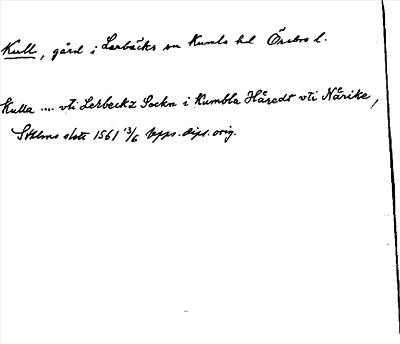 Kull, gård i Lerbäcks sn Kumla hd Örebro l.
Kulla .... vti Lerbeckz Sockn i Kumbla Häredt vti Närike,
Sthlms slott 1561 13/6 Upps. dipl. orig.